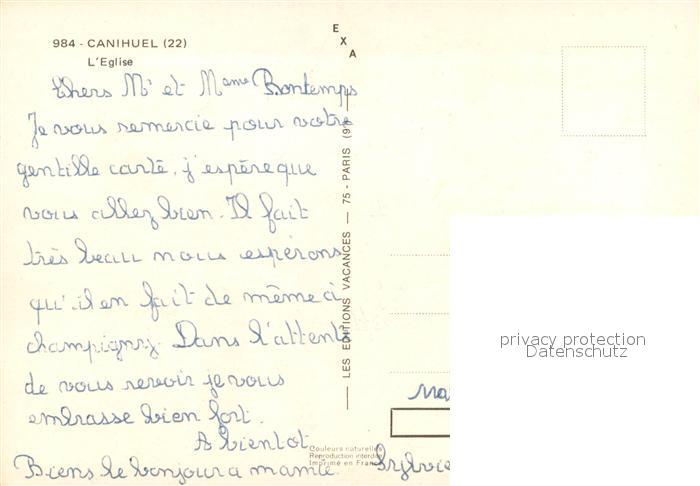 984 - CANIHUEL (22)
L'Eglise
E
X
A
Chers Mr et Mame Bontemps
Je vous remercie pour votre
gentille carte, j'espère que
vous allez bien. Il fait
très beau nous espérons
qu'il en fait de même à
champigny. Dans l'attente
de vous revoir je vous
embrasse bien fort.
A bientot
Biens le bonjour a mamie. Sylvie
LES EDITIONS VACANCES — 75 - PARIS
Couleurs naturelles
Reproduction interdite
Imprimé en France
privacy protection
Datenschutz